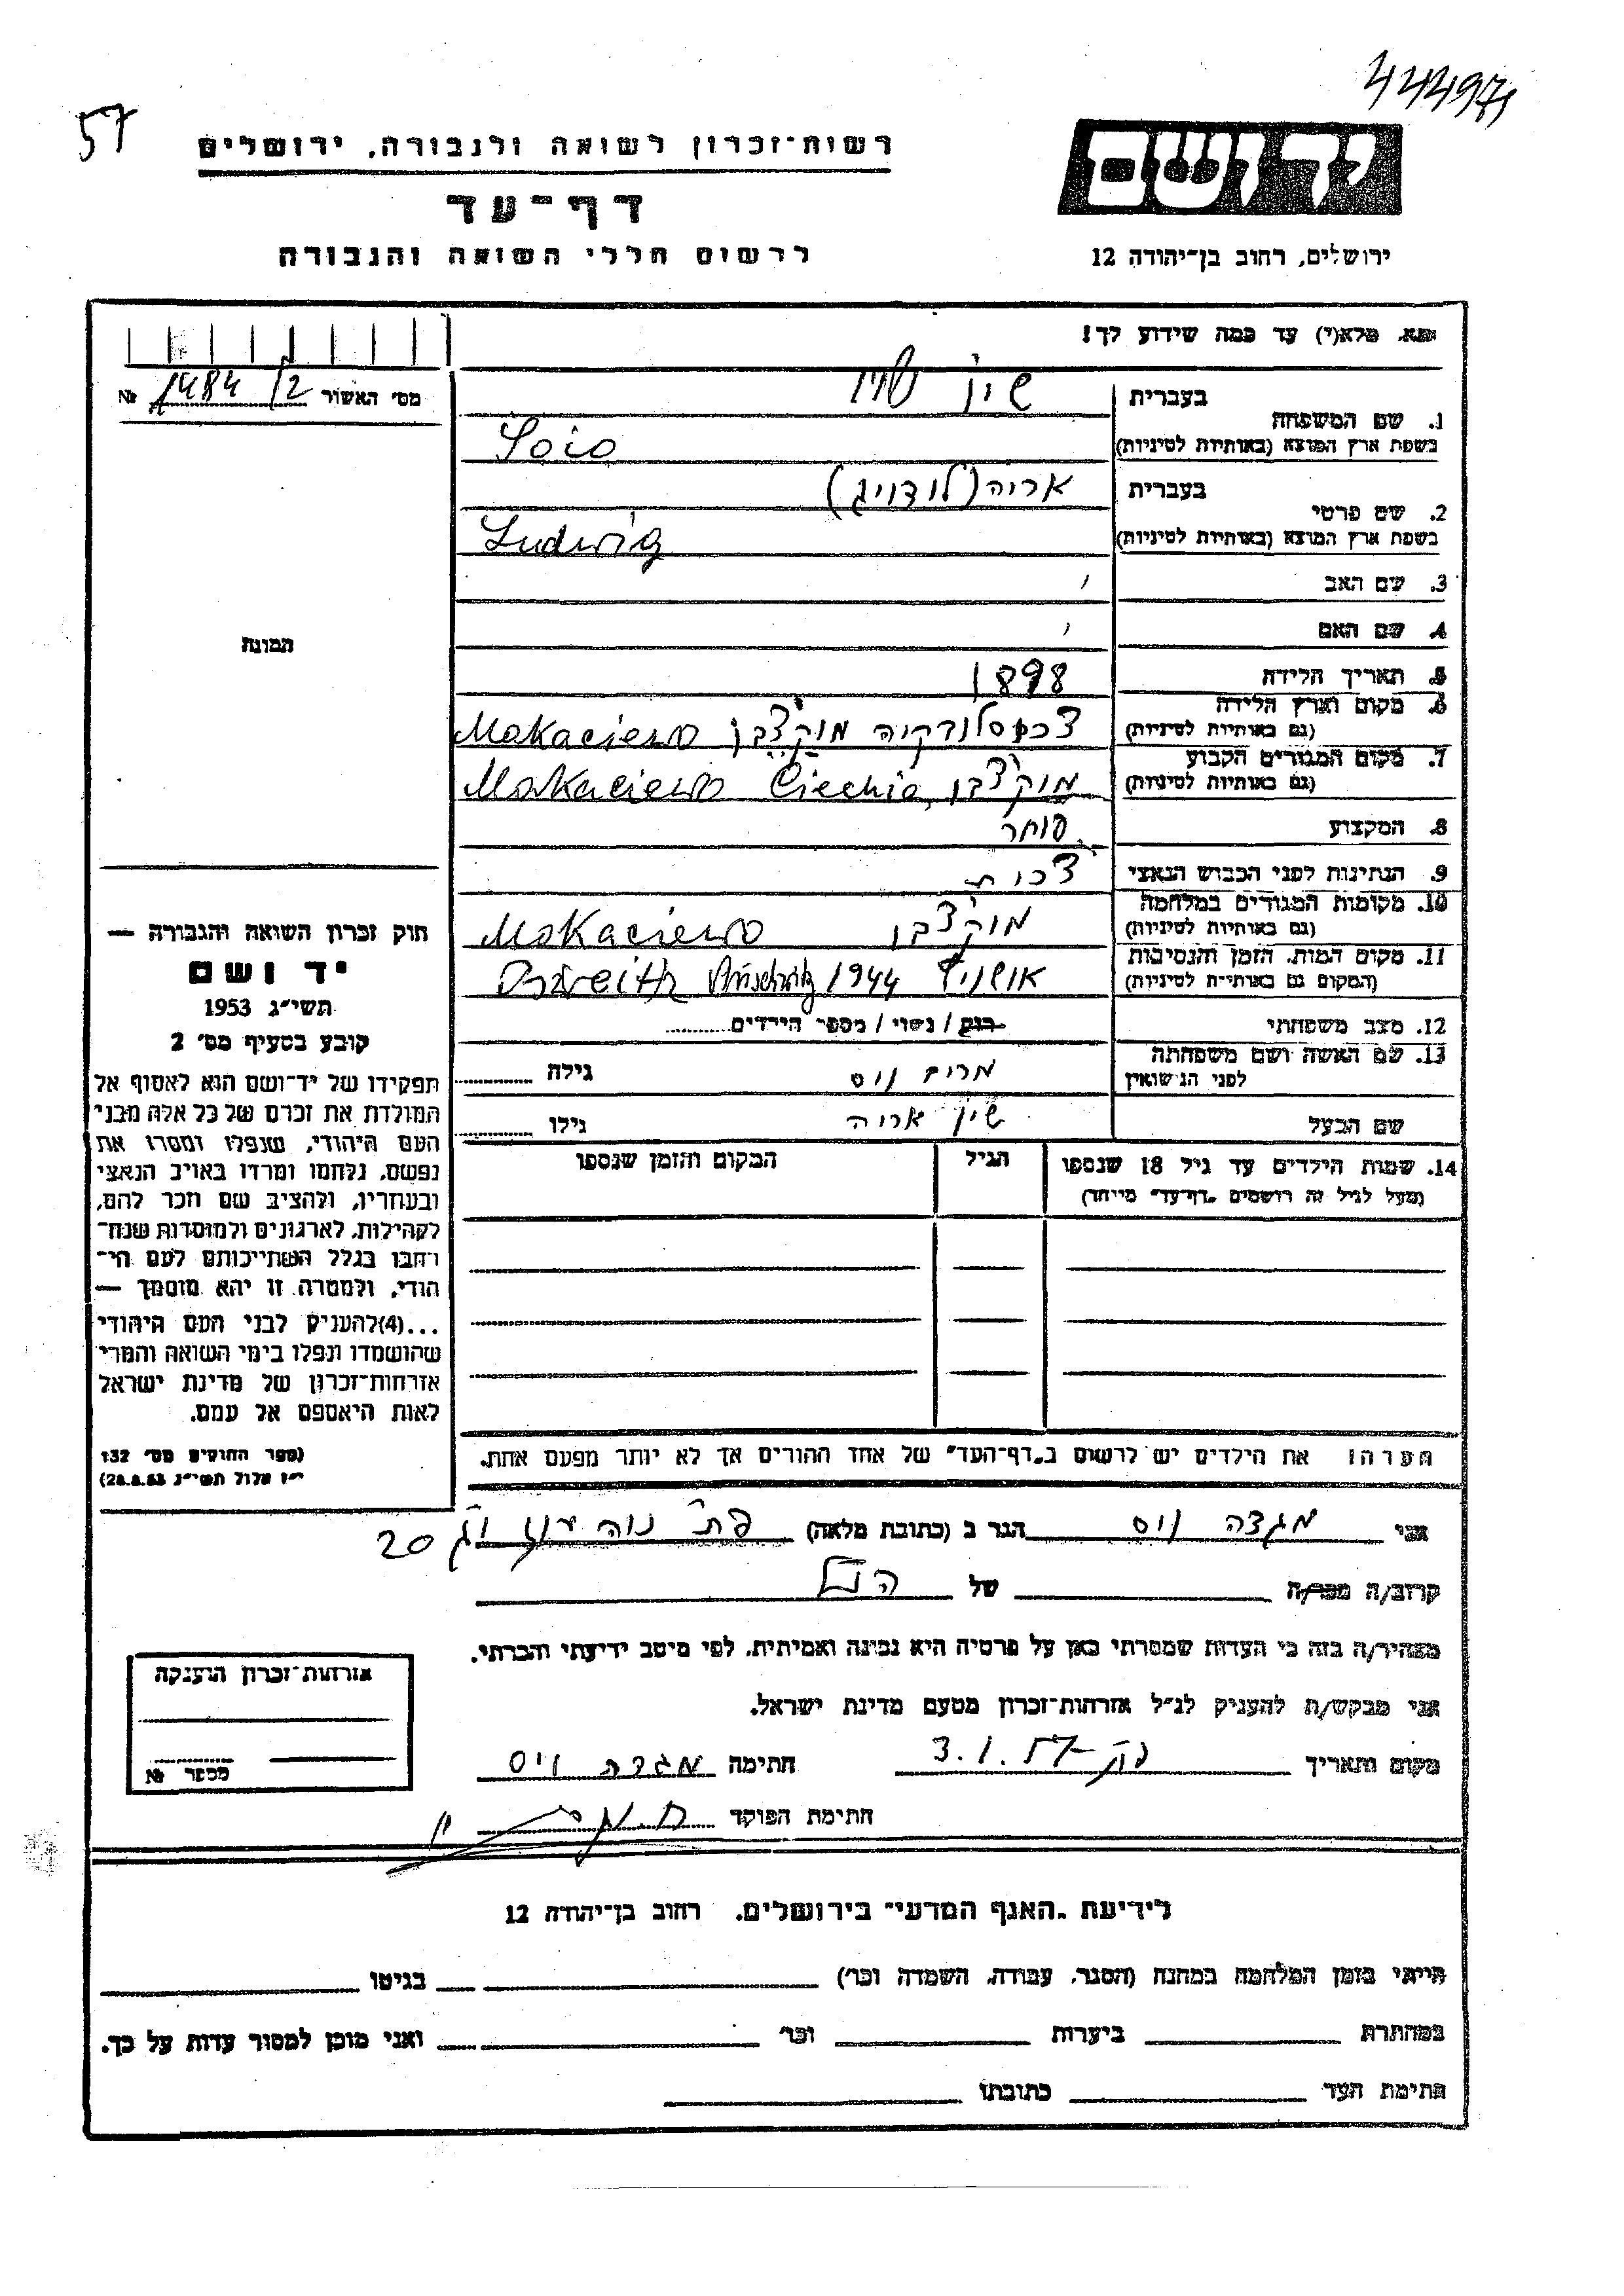 44497
57
יד ושם
רשות־זכרון לשואה ולגבורה, ירושלים
דף־עד
לרשום חללי השואה והגבורה
ירושלים, רחוב בן־יהודה 12
נא מלא(י) עד כמה שידוע לך!
מס׳ האשור 1484/2 №
1. שם המשפחה
בעברית שיין
בשפת ארץ המוצא (באותיות לטיניות) Soio
2. שם פרטי
בעברית אריה (לודויג)
בשפת ארץ המוצא (באותיות לטיניות) Ludwig
3. שם האב
4. שם האם
5. תאריך הלידה 1898
6. מקום וארץ הלידה
(גם באותיות לטיניות) צכוסלובקיה מוקצבו Mokaciewo
7. מקום המגורים הקבוע
(גם באותיות לטיניות) מוקצבו Mokaciewo Ciechia
8. המקצוע סוחר
9. הנתינות לפני הכבוש הנאצי צכית
10. מקומות המגורים במלחמה
(גם באותיות לטיניות) מוקצבו Mokaciewo
11. מקום המות, הזמן והנסיבות
(המקום גם באותיות לטיניות) אושויץ 1944
12. מצב משפחתי רווק / נשוי / מספר הילדים
13. שם האשה ושם משפחתה
לפני הנישואין מרים וויס גילה
שם הבעל שיין אריה גילו
14. שמות הילדים עד גיל 18 שנספו
(מעל לגיל זה רושמים „דף־עד״ מיוחד)
הגיל
המקום והזמן שנספו
הערה: את הילדים יש לרשום ב„דף־העד״ של אחד ההורים אך לא יותר מפעם אחת.
התמונה
חוק זכרון השואה והגבורה —
יד ושם
תשי״ג 1953
קובע בסעיף מס׳ 2
תפקידו של יד־ושם הוא לאסוף אל
המולדת את זכרם של כל אלה מבני
העם היהודי, שנפלו ומסרו את
נפשם, נלחמו ומרדו באויב הנאצי
ובעוזריו, ולהציב שם וזכר להם,
לקהילות, לארגונים ולמוסדות שנח־
רבו בגלל השתייכותם לעם הי־
הודי, ולמטרה זו יהא מוסמך —
...(4)להעניק לבני העם היהודי
שהושמדו ונפלו בימי השואה והמרי
אזרחות־זכרון של מדינת ישראל
לאות היאספם אל עמם.
(ספר החוקים מס׳ 132
י״ז אלול תשי״ג 28.8.53)
אני מגדה וויס הגר ב (כתובת מלאה) פת׳ נוה עוז 20
קרוב/ה מכר/ה של הנ״ל
מצהיר/ה בזה כי העדות שמסרתי כאן על פרטיה היא נכונה ואמיתית, לפי מיטב ידיעתי והכרתי.
אני מבקש/ת להעניק לנ״ל אזרחות־זכרון מטעם מדינת ישראל.
מקום ותאריך 3.1.57 חתימה מגדה וויס
חתימת הפוקד
אזרחות־זכרון הוענקה
מספר №
לידיעת „האגף המדעי״ בירושלים, רחוב בן־יהודה 12
הייתי בזמן המלחמה במחנה (הסגר, עבודה, השמדה וכו׳) בגיטו
במחתרת ביערות וכו׳ ואני מוכן למסור עדות על כך.
חתימת העד כתובתו